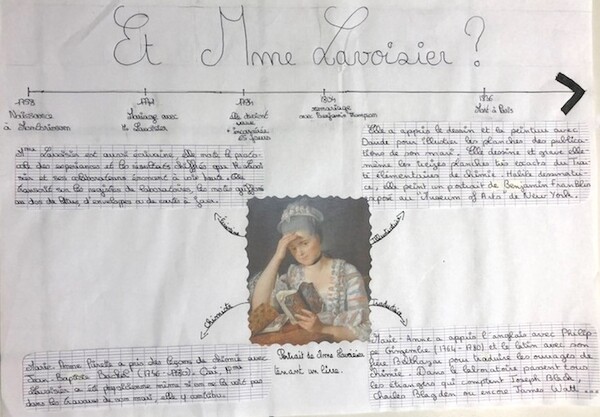 Et Mme Lavoisier ?
1758
1771
1794
1804
1836
Naissance
à Montbrison
Mariage avec
M. Lavoisier
elle devient
veuve
+ incarcérée
65 jours
remariage
avec Benjamin Thompson
Mort à Paris
Mme Lavoisier est aussi écrivaine, elle note le proto-
col des expériences et les résultats chiffrés que M. Lavoi-
sier et ses collaborateurs donnent à voix haute. Elle
travaille sur les registres de laboratoires, les notes
au dos de d'enveloppes ou de carte à jouer.
Elle a appris le dessin et la peinture avec
David pour illustrer les planches des publica-
tions de son mari. Elle dessine et grave elle
même les treize planches très exacts du Trai-
té élémentaires de chimie. Habile dessinatri-
ce, elle peint un portrait de Benjamin Franklin
exposé au Museum of Arts de New York.
Écrivaine
Illustratrice
Chimiste
Traductrice
Portrait de Mme Lavoisier
tenant un livre.
Marie Anne Paulze a pris des leçons de chimie avec
Jean-Baptiste (1746-1840). Oui, pour
Lavoisier, il est professeur même si on ne la voit pas
dans les travaux de son mari elle y contribue.
Marie Anne a appris l'anglais avec Philip-
pe Gingembre (1764-1840) et le latin avec son
frère Balthazar pour traduire les ouvrages de
Chimie. Dans le laboratoire passent tous
les étrangers qui comptent Joseph Black,
Charles Blagden ou encore James Watt ...